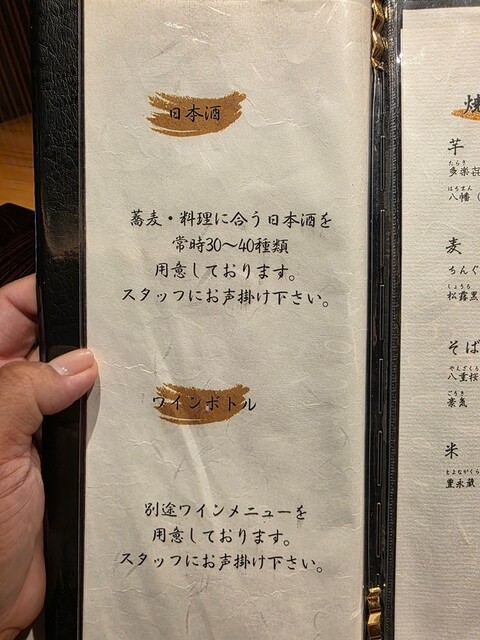 日本酒
蕎麦・料理に合う日本酒を
常時30〜40種類
用意しております。
スタッフにお声掛け下さい。
ワインボトル
別途ワインメニューを
用意しております。
スタッフにお声掛け下さい。
芋
たらき
多楽
はちまん
八幡（
麦
ちんぐ
しょうろ
松露黒
そば
やえざくら
八重桜
ごうき
豪気
米
とよながくら
豊永蔵